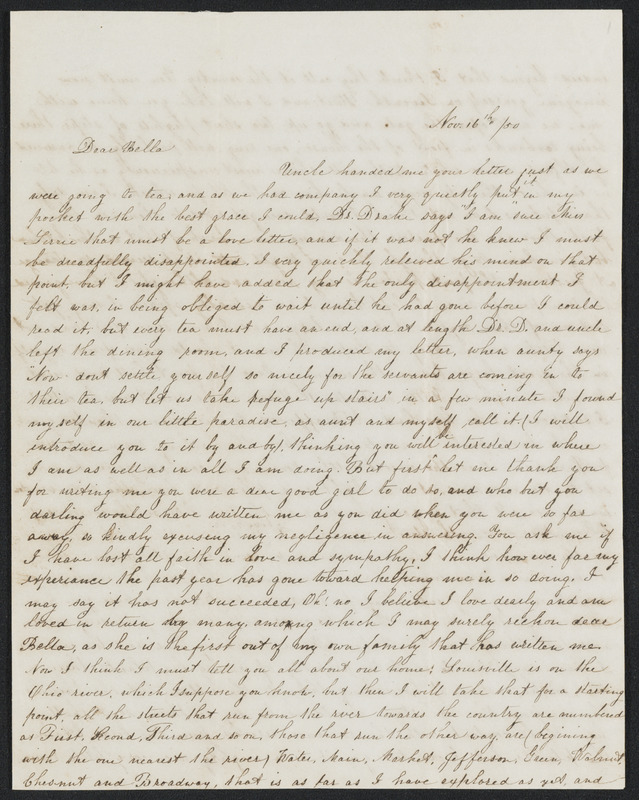 1
Nov. 16th /50
Dear Bella
Uncle handed me your letter just as we
were going to tea, and as we had company I very quietly put in my
pocket with the best grace I could, Dr. Drake says "I am sure Miss
that must be a love letter, and if it was not he knew I must
be dreadfully disappointed. I very quickly releived his mind on that
point, but I might have added that the only disappointment I
felt was, in being obliged to wait until he had gone before I could
read it, but every tea must have an end, and at length Dr. D. and uncle
left the dining room, and I produced my letter, when aunty says
"Now dont settle yourself so nicely for the servants are coming in to
their tea, but let us take refuge up stairs" in a few minute I found
myself in our little paradise, as aunt and myself call it. (I will
introduce you to it by and by), thinking you will interested in where
I am as well as in all I am doing. But first let me thank you
for writing me you were a dear good girl to do so, and who but you
darling would have written me as you did when you were so far
away, so kindly excusing my negligence in answering. You ask me if
I have lost all faith in love and sympathy, I think how ever far my
experience the past year has gone toward helping me in so doing, I
may say it has not succeeded, Oh! no I believe I love dearly and am
loved in return by many, among which I may surely reckon dear
Bella, as she is the first out of my own family that has written me.
Now I think I must tell you all about our home; Louisville is on the
Ohio river, which I suppose you know, but then I will take that for a starting
point, all the streets that run from the river towards the country are numbered
as First, Second, Third and so on, those that run the other way, are (begining
with the one nearest the river) Water, Main, Market, Jefferson, Green, Walnut,
Chesnut and Broadway, that is as far as I have explored as yet, and